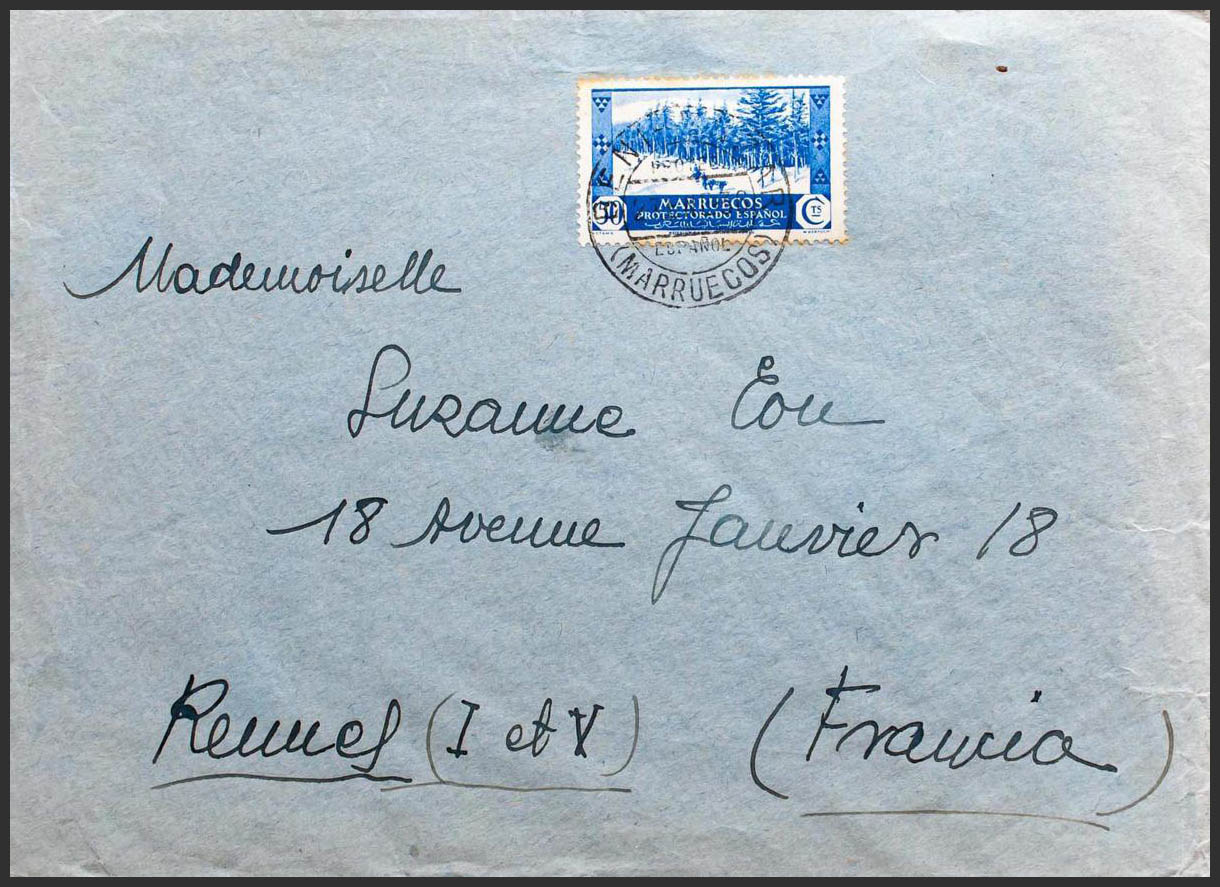 50
MARRUECOS
PROTECTORADO ESPAÑOL
CTS
ESPAÑOL
(MARRUECOS)
Mademoiselle
Suzanne Eon
18 Avenue Janvier 18
Rennes (I et V) (Francia)